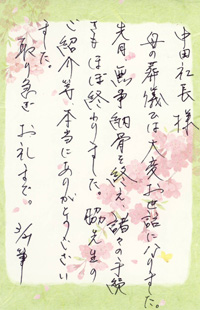 中田社長様
母の葬儀では大変お世話になりました。
先月、無事納骨を終え、諸々の手続
きもほぼ終わりました。脇先生の
ご紹介等、本当にありがとうござい
ました。
取り急ぎお礼まで。